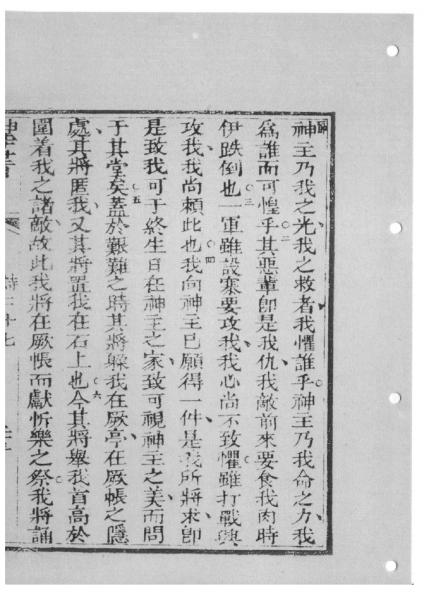 神主乃我之光我之救者我懼誰乎神主乃我命之力我
為誰而可惶乎其惡輩卽是我仇我敵前來要食我肉時
伊跌倒也一軍雖設寨要攻我我心尚不致懼雖打戰與
攻我我尚賴此也我向神主已願得一件是我所將求卽
是致我可于終生日在神主之家致可視神主之美而問
于其堂矣蓋於艱難之時其將躱我在厥亭在厥帳之隱
處其將匿我又其將置我在石上也今其將舉我首高於
圍着我之諸敵故此我將在厥帳而獻忻樂之祭我將誦
詩二十七
二
三
四
五
六